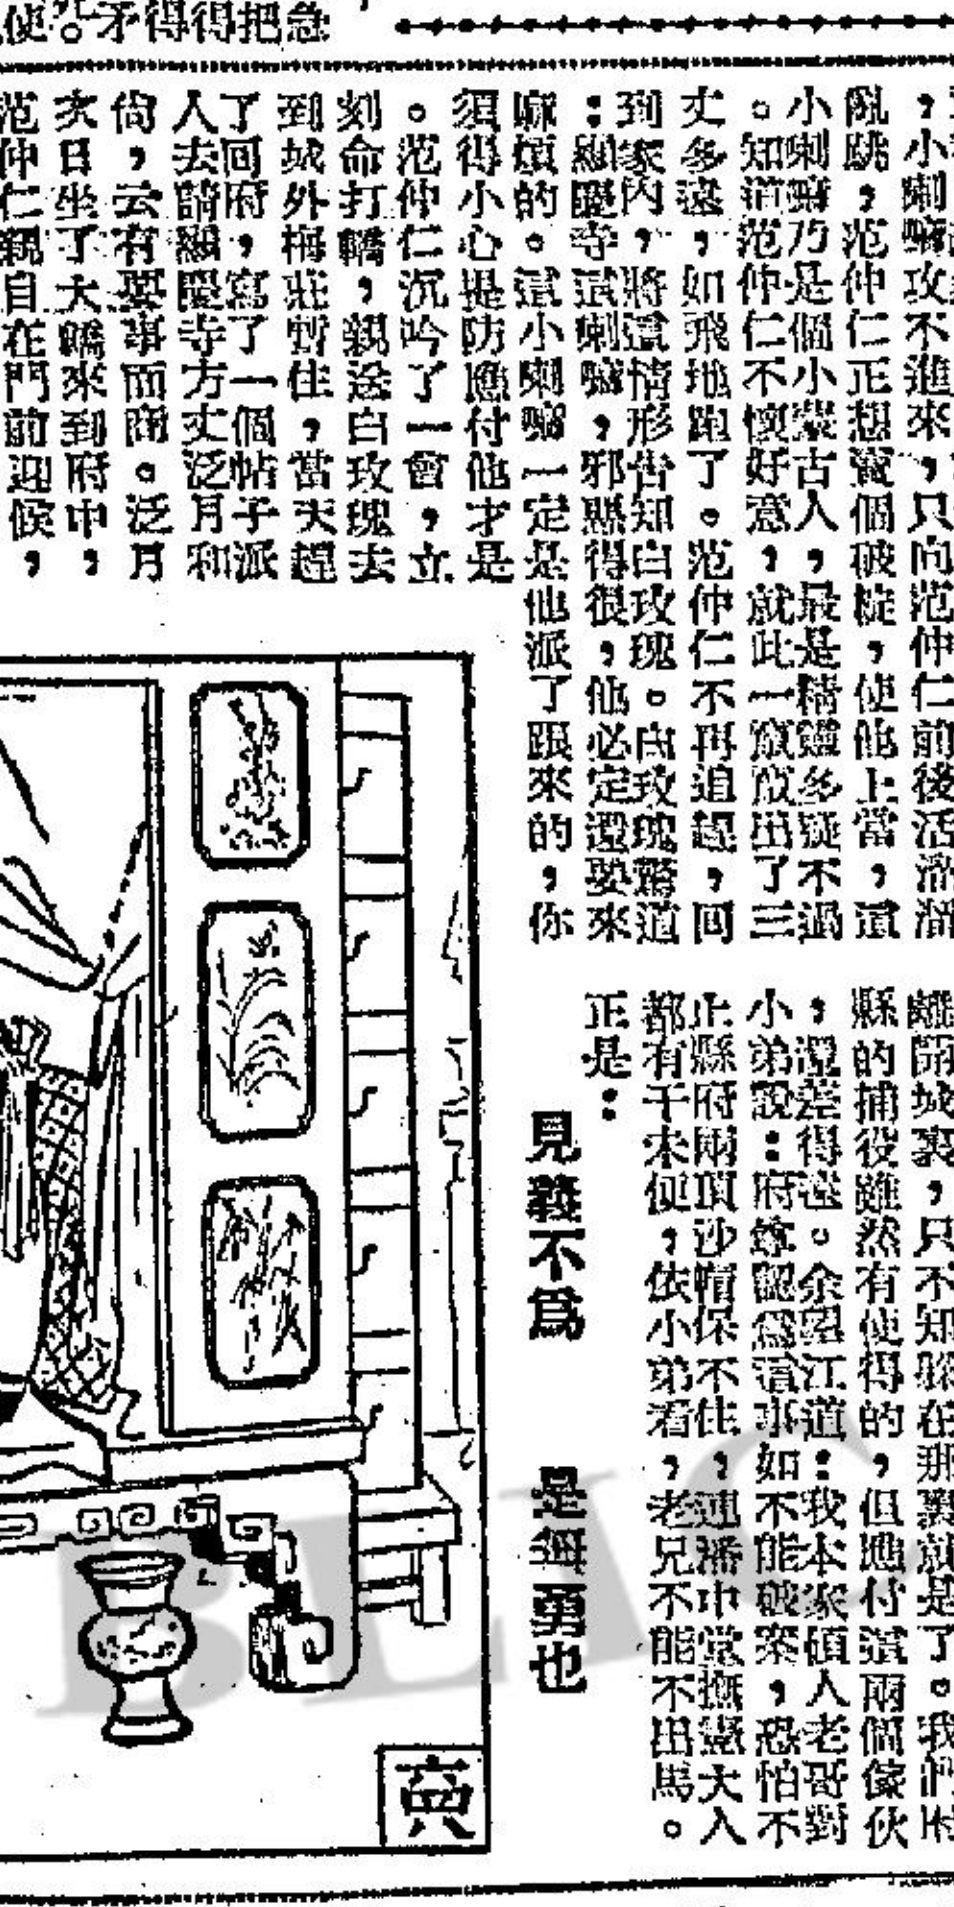 急把得得矛。使
，小喇嘛攻不進來，只向范仲仁前後活溜溜
亂跳，范仲仁正想賣個破綻，使他上當，這
小喇嘛乃是個小蒙古人，最是精靈多疑不過
。知道范仲仁不懷好意，就此一竄竄出了三
丈多遠，如飛地跑了。范仲仁不再追趕，回
到家內，將這情形告知白玫瑰。白玫瑰驚道
：顯慶寺這喇嘛，邪縣得很，他必定還要來
麻煩的。這小喇嘛一定是他派了跟來的，你
須得小心提防應付他才是
。范仲仁沉吟了一會，立
刻命打轎，親送白玫瑰去
到城外梅莊暫住，當天趕
了回府，寫了一個帖子派
人去請顯慶寺方丈泛月和
尙，云有要事而商。泛月
次日坐了大轎來到府中，
范仲仁親自在門前迎候，
離開城裏，只不知躱在那裏就是了。我們
縣的捕役雖然有使得的，但應付這兩個傢伙
，還差得遠。余望江道：我本家碩人老哥對
小弟說：府尊認爲這事如不能破案，恐怕不
止縣府兩頂沙帽保不住，連潘中堂撫憲大人
都有干未便，依小弟看，老兄不能不出馬。
正是：
見義不爲　是無勇也
BLIC